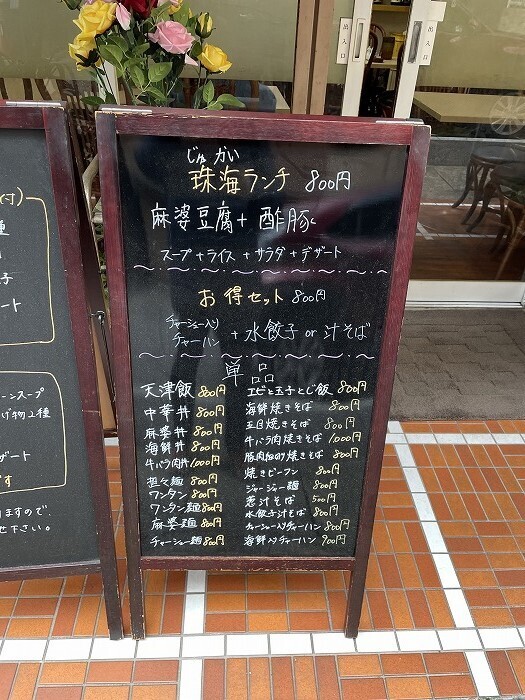 出入口
出入口
じゅ かい
珠海ランチ 800円
麻婆豆腐+酢豚
スープ+ライス+サラダ+デザート
お得セット 800円
チャーシュー入り
チャーハン
+水餃子or汁そば
単品
天津飯 800円
中華丼 800円
麻婆丼 800円
海鮮丼 800円
牛バラ肉丼 1000円
担々麺 800円
ワンタン 800円
ワンタン麺 800円
麻婆麺 800円
チャーシュー麺 800円
エビと玉子とじ飯 800円
海鮮焼きそば 800円
五目焼きそば 800円
牛バラ肉焼きそば 1000円
豚肉細切り焼きそば 800円
焼きビーフン 800円
ジャージャー麺 800円
葱汁そば 500円
水餃子汁そば 800円
チャーシュー入りチャーハン 800円
海鮮入りチャーハン 900円
付)
種
子
ート
ーンスープ
げ物2種
ザート
です
ますので、
せ下さい。